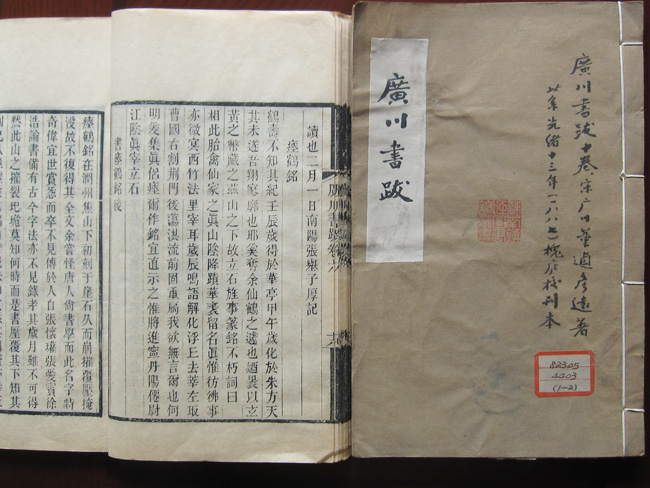 廣川書跋十卷宋廣川董逌彥遠著
此系光緒十三年一八八七槐庐校刊本
廣川書跋
82305
4403
(1-2)
讀也二月一日南陽張子厚記
瘞鶴銘
鶴壽不知其紀壬辰歲得於華亭甲午歲化於朱方天
其未遂吾翔寥廓也耶奚奪余仙鶴之遽也迺裹以玄
黃之幣藏之茲山之下故立石旌事篆銘不朽詞曰
相此胎禽仙家之眞山陰降蹟華表留名眞惟彷彿事
亦微冥西竹法里宰耳歲辰鳴語解化浮丘去莘左取
曹國右割荆門後蕩洪流前固重扃我欲無言爾也何
明爰集眞侶瘞爾作銘宜直示之惟將進寧丹陽僊尉
江陰眞宰立石
書瘞鶴銘後
瘞鶴銘在潤州焦山下初刻于崖石久而崩摧覆壓掩
沒故不復得其全文余嘗怪唐人尚書學而此名字特
奇偉宜世賞愛而卒不見傳於人自張懷瓘張愛賓徐
浩論書備有古今字法亦不見錄考其歲月雖不可得
然此山之摧裂圮莫知何時而是書壓覆其下知其